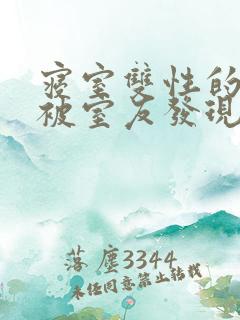 寢室雙性的
被室友發現
落塵3344
未经同意禁止转载